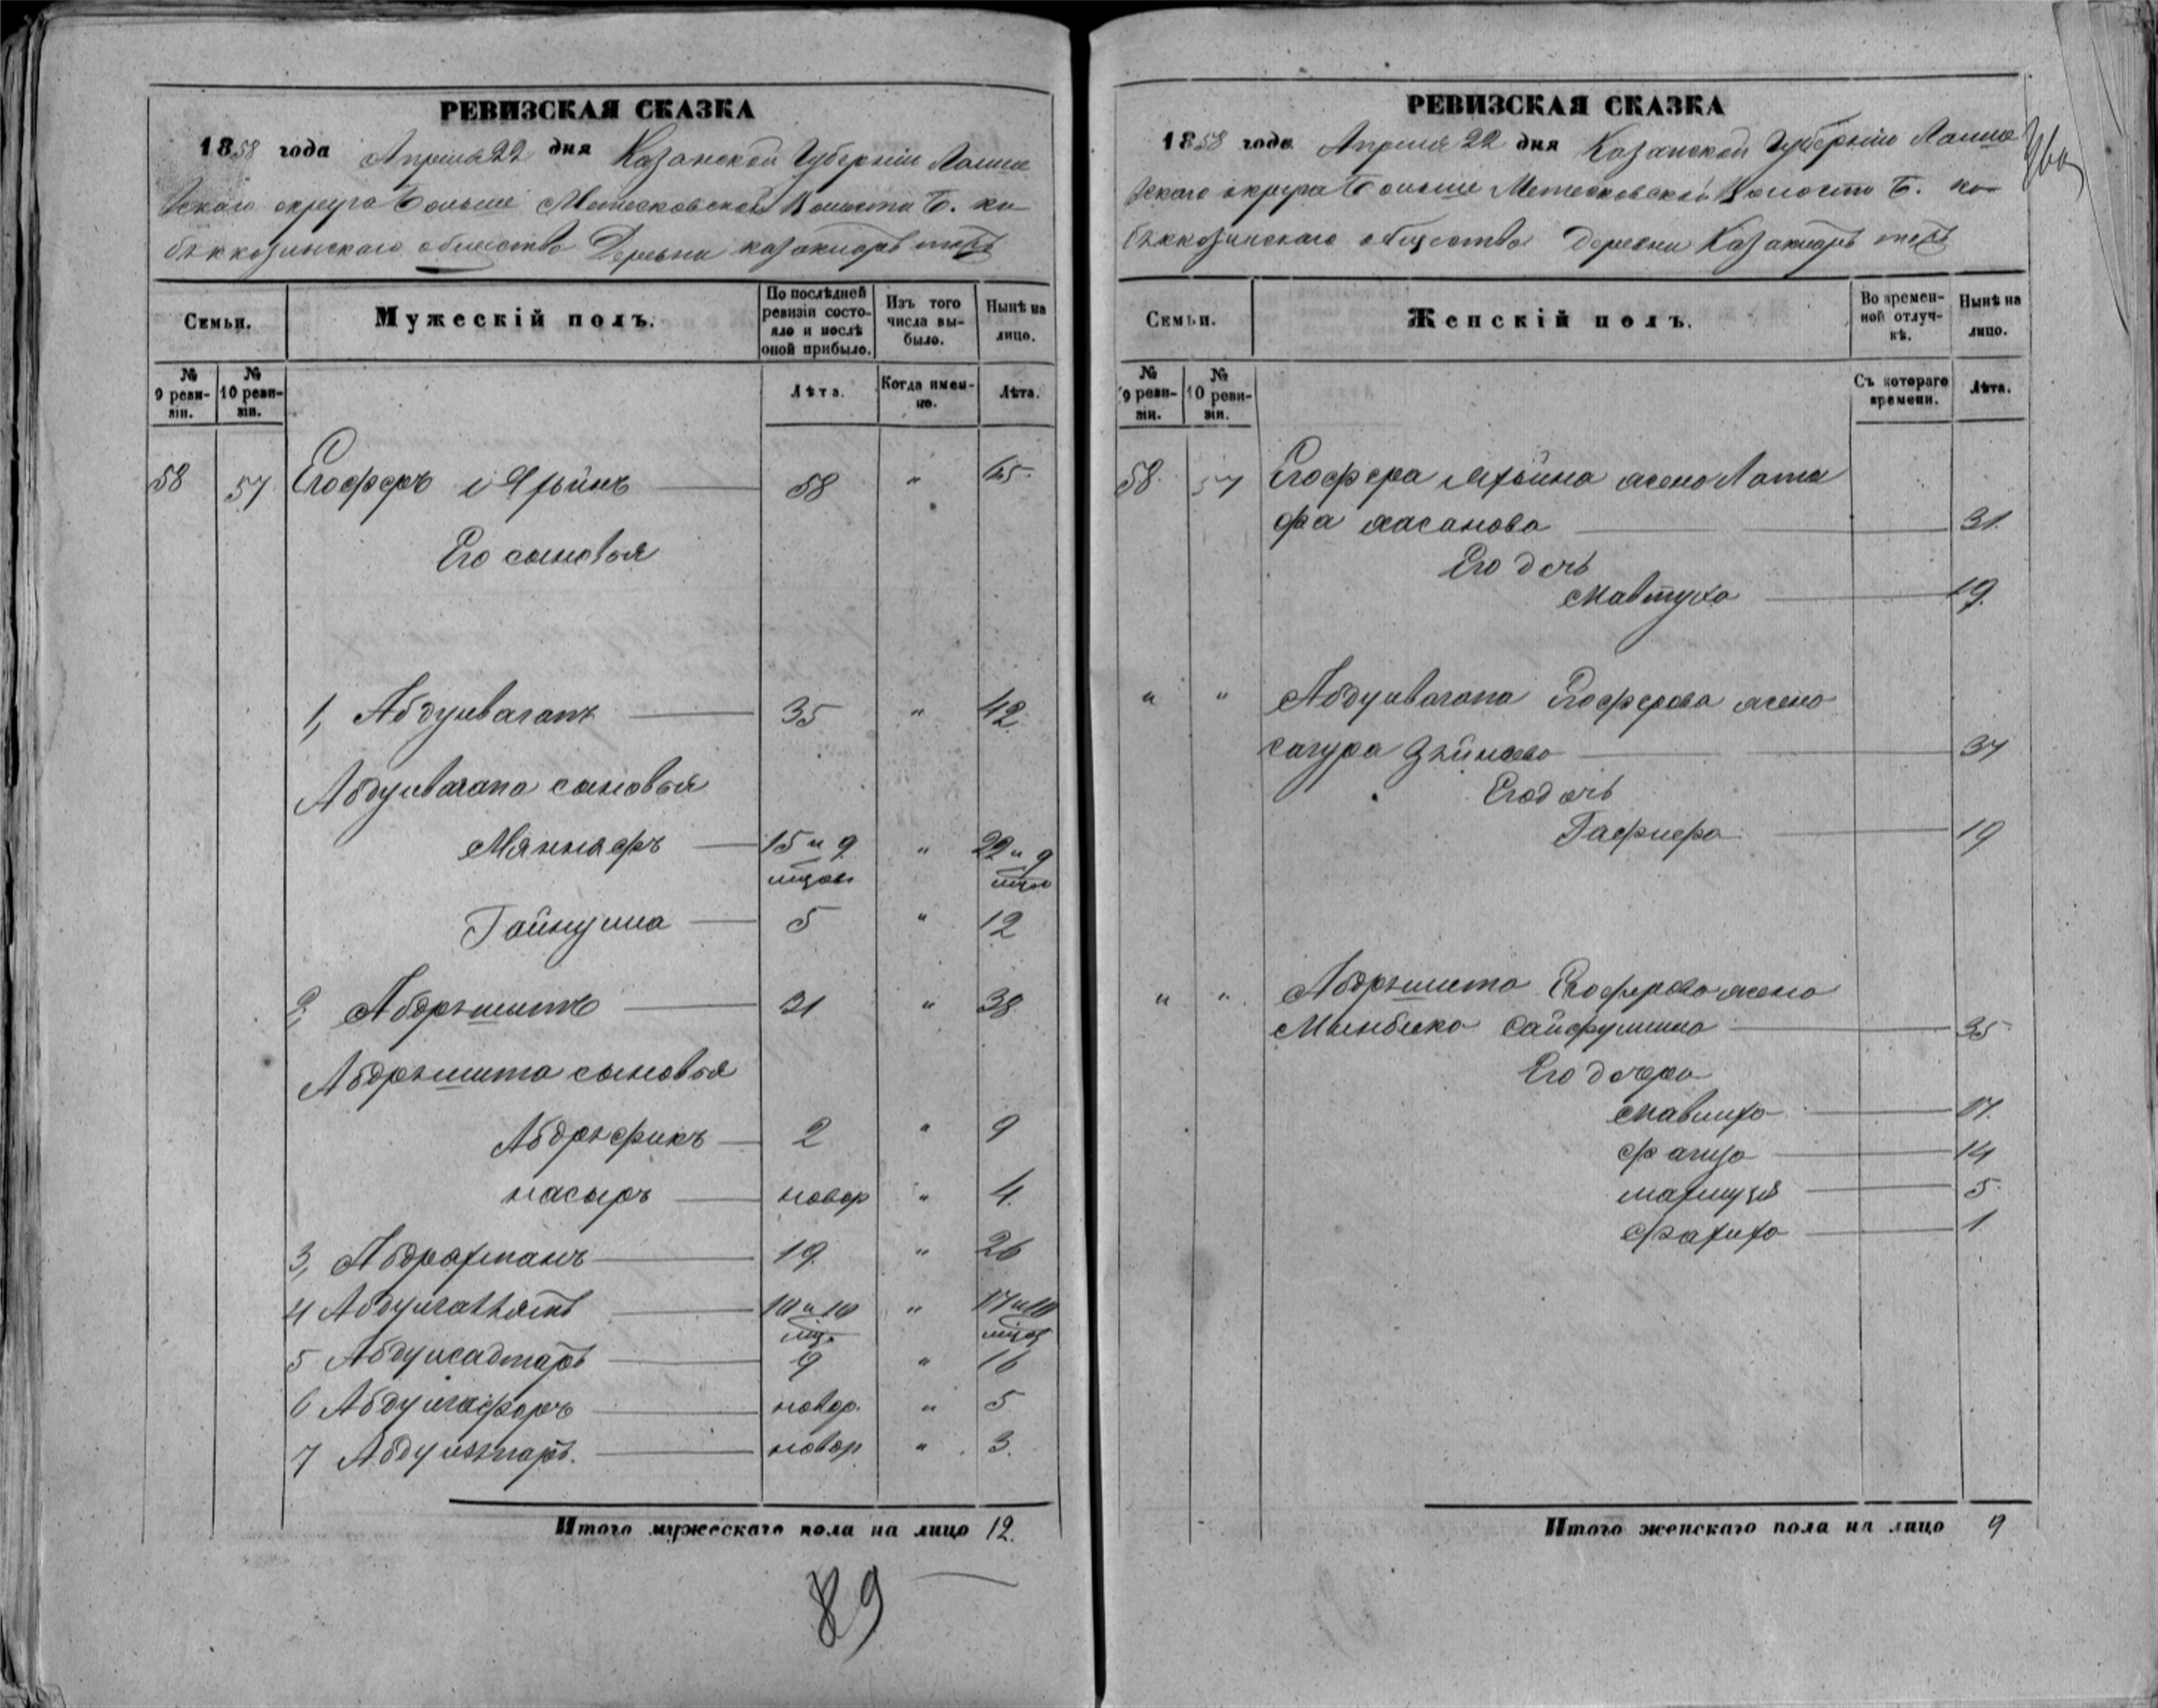 РЕВИЗСКАЯ СКАЗКА
1858 года Апреля 22 дня Казанской Губерніи Лаише
вскаго округа Больше Метесковской Волости Б. ко
бяккозинскаго общества Деревни казакларъ тожъ
Семьи.
Мужескій полъ.
По послѣдней ревизіи состояло и послѣ оной прибыло.
Изъ того числа выбыло.
Нынѣ на лицо.
№ 9 ревизіи.
№ 10 ревизіи.
Лѣта.
Когда именно.
Лѣта.
58 57 Ягофоръ 58 " 65
Его сыновья
1, Абдулвагапъ 35 " 42
Абдулвагапа сыновья
Маннафъ 15 и 9 мцов " 22 и 9 мцов
Гайнулла 5 " 12
2, Абдряшитъ 31 " 38
Абдряшита сыновья
Абдряфикъ 2 " 9
насыръ новор " 4
3, Абдрахманъ 19 " 26
4 10 и 10 мцв " 17 и 10 мцов
5 Абдулсадтаръ 9 " 16
6 Абдулгафоръ новор. " 5
7 новор " 3.
Итого мужескаго пола на лицо 12.
89
РЕВИЗСКАЯ СКАЗКА
1858 года Апреля 22 дня Казанской Губерніи Лаише
вскаго округа Больше Метесковской Волости Б. ко
бяккозинскаго общества Деревни Казакларъ тожъ
Семьи.
Женскій полъ.
Во временной отлучкѣ.
Нынѣ на лицо.
№ 9 ревизіи.
№ 10 ревизіи.
Съ котораго времени.
Лѣта.
58 57 жена Лати
фа хасанова 31
Его дочь
19
" " Абдулвагапа жена
сагура 37
Его дочь
19
" " Абдряшита жена
Минбика Сайфуллина 35
Его дочери
мавлиха 17
фагиза 14
5
фатиха 1
Итого женскаго пола на лицо 9